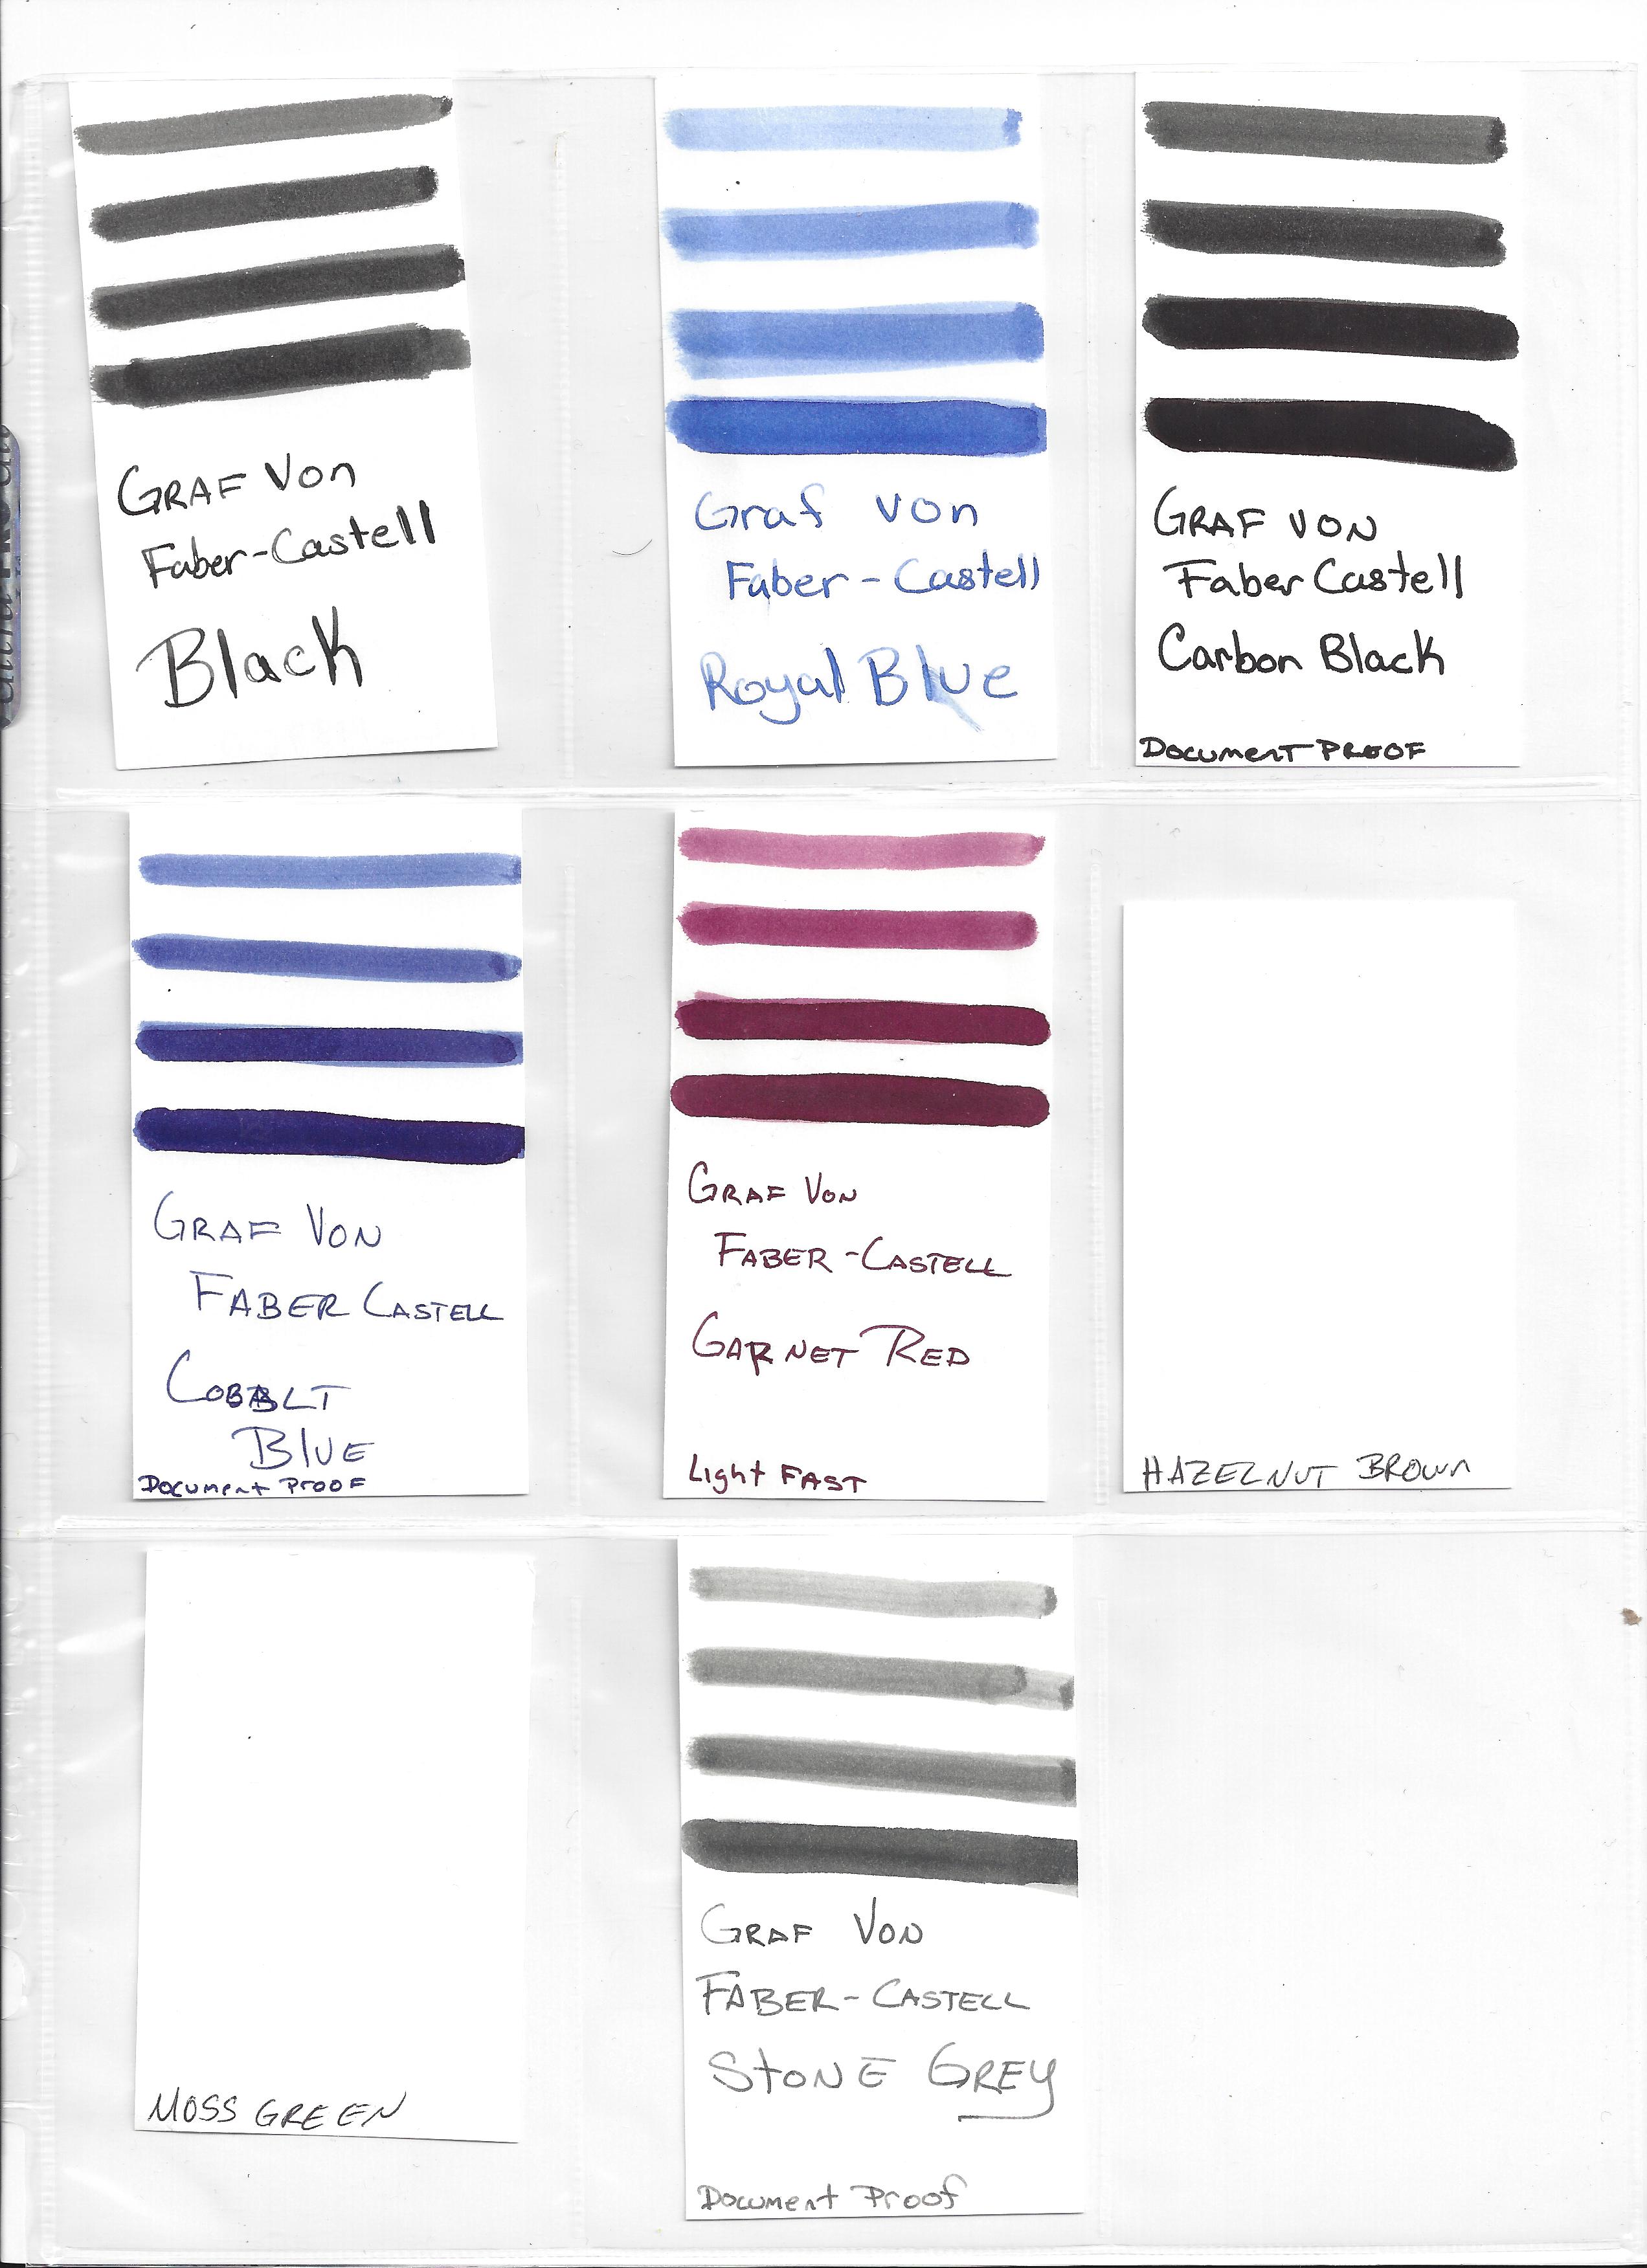 GRAF Von
Faber-Castell
Black
Graf von
Faber-Castell
Royal Blue
GRAF VON
Faber Castell
Carbon Black
Document Proof
GRAF VON
FABER CASTELL
COBALT
BLUE
Document Proof
GRAF VON
FABER-CASTELL
GARNET RED
Light FAST
HAZELNUT BROWN
MOSS GREEN
GRAF VON
FABER-CASTELL
STONE GREY
Document Proof